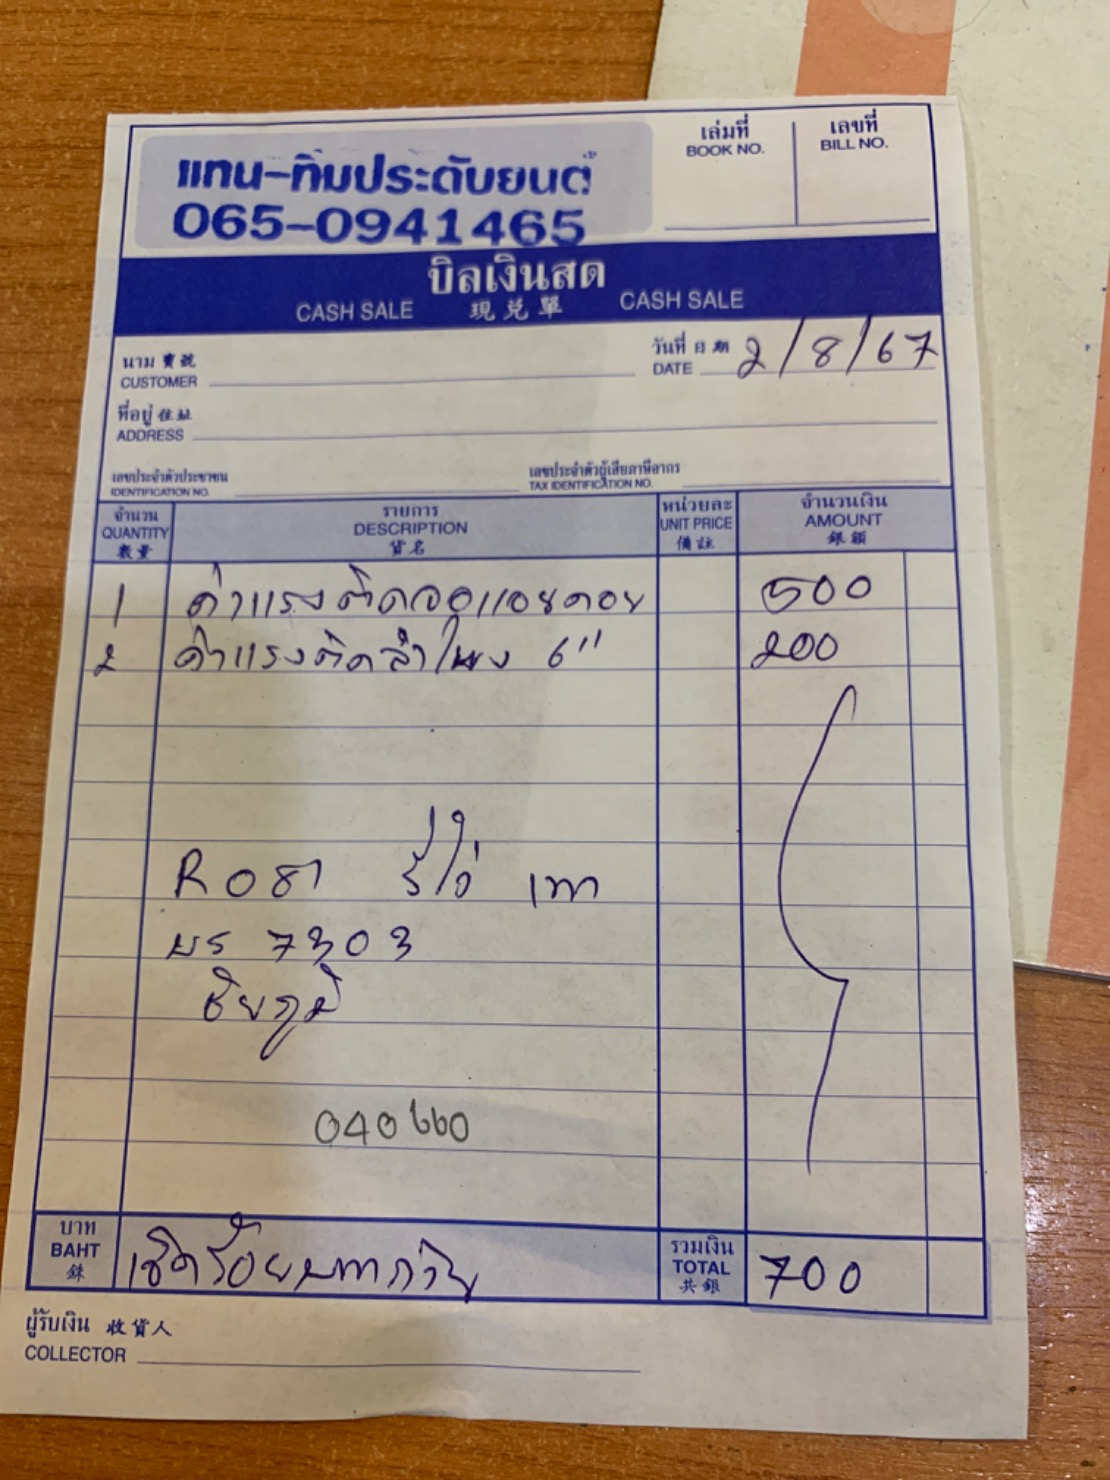 แทน-ทิมประดับยนต์
065-0941465
เล่มที่
BOOK NO.
เลขที่
BILL NO.
บิลเงินสด
CASH SALE 現兑單 CASH SALE
นาม 寶號
CUSTOMER
วันที่ 日期 2/8/67
DATE
ที่อยู่ 住址
ADDRESS
เลขประจำตัวประชาชน
IDENTIFICATION NO.
เลขประจำตัวผู้เสียภาษีอากร
TAX IDENTIFICATION NO.
จำนวน
QUANTITY
數量
รายการ
DESCRIPTION
貨名
หน่วยละ
UNIT PRICE
備註
จำนวนเงิน
AMOUNT
銀額
1 ค่าแรงติดจอแอนดอย 500
2 ค่าแรงติดลำโพง 6" 200
R081 เทา
บร 7303
ชัยภูมิ
040660
บาท
BAHT
銖
เจ็ดร้อยบาทถ้วน
รวมเงิน
TOTAL
共銀
700
ผู้รับเงิน 收貨人
COLLECTOR